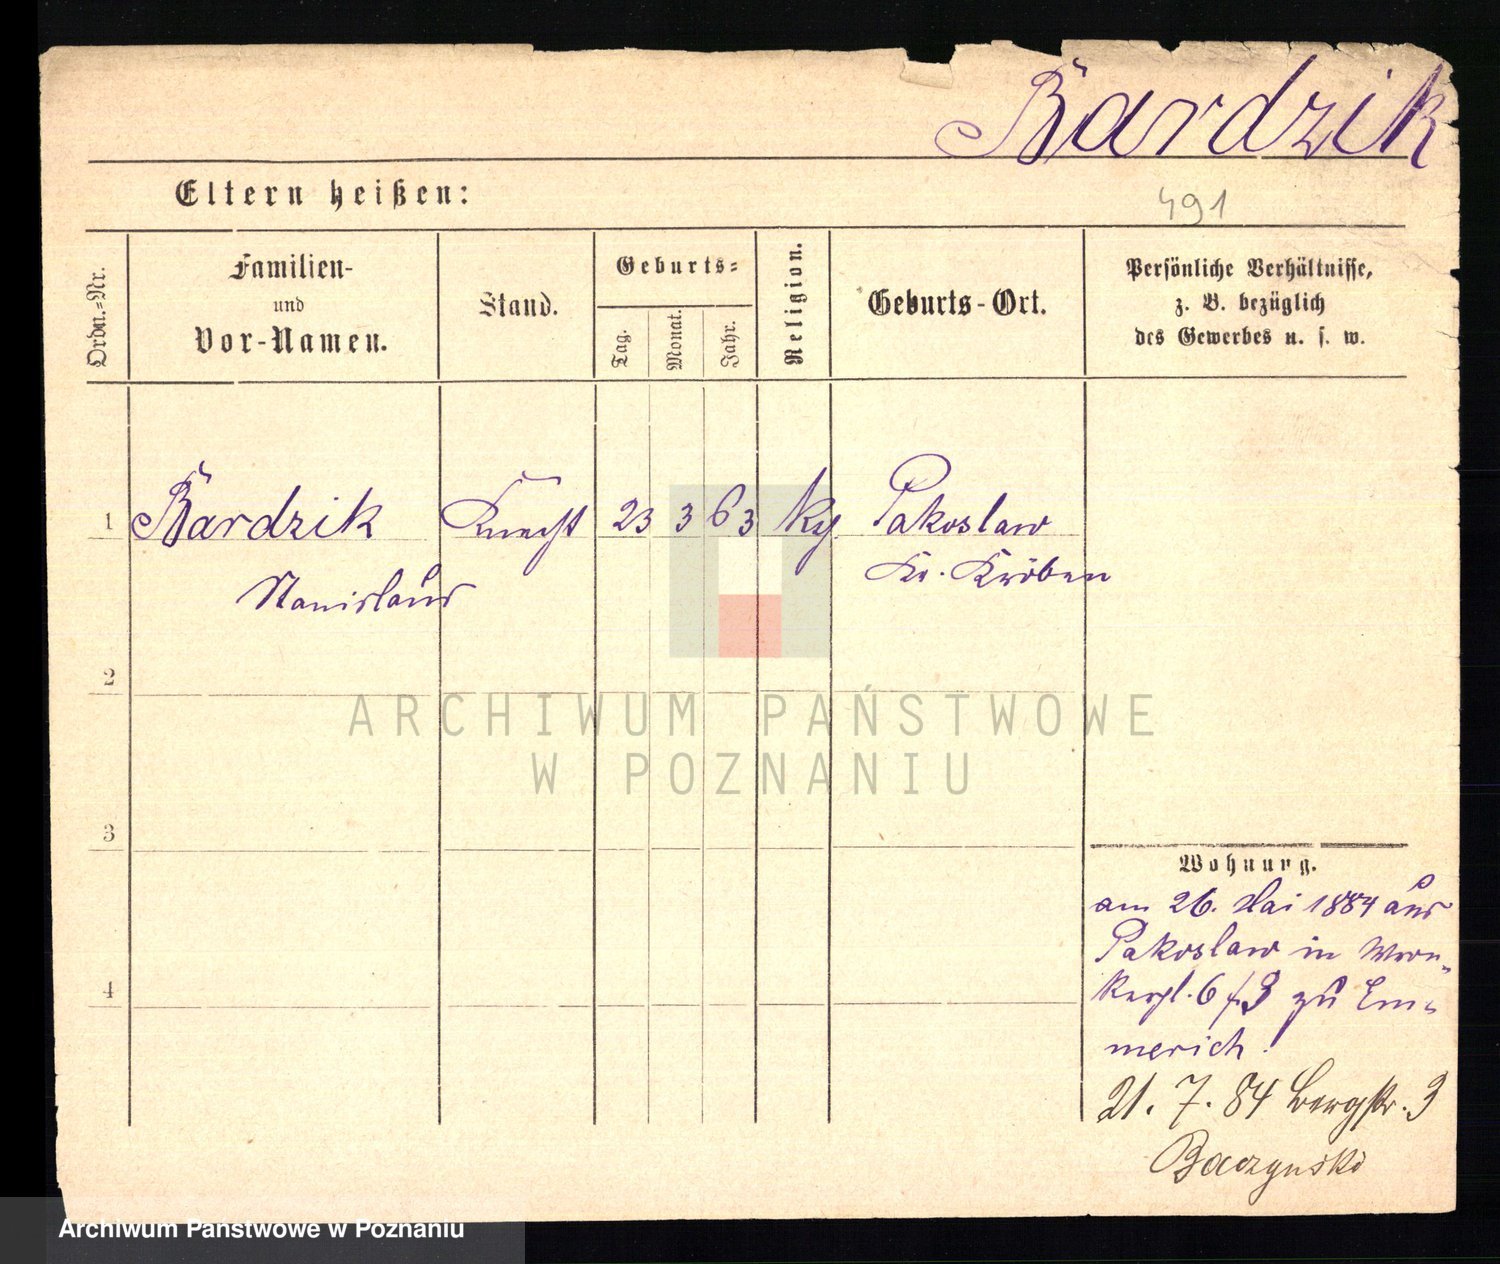 Bardzik
Eltern heißen:
491
Ordn.-Nr.
Familien-
und
Vor-Namen.
Stand.
Geburts-
Tag.
Monat.
Jahr.
Religion.
Geburts-Ort.
Persönliche Verhältnisse,
z. B. bezüglich
des Gewerbes u. s. w.
1 Bardzik Knecht 23 3 63 Pakoslaw
Stanislaus Kr. Kröben
2
ARCHIWUM PAŃSTWOWE
W POZNANIU
3
Wohnung.
am 26. Mai 1884 aus
Pakoslaw in Wron-
kerpl. 6 zu Em-
merich.
4
21. 7. 84 Bergstr. 3
Baczynski
Archiwum Państwowe w Poznaniu